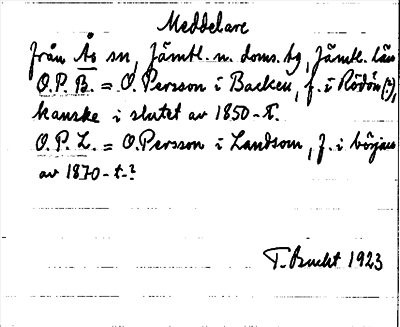 Meddelare
från Ås sn, Jämtl. n. doms. bg, Jämtl. län
O.P.B. = O. Persson i Backen, f. i Rödön(?),
kanske i slutet av 1850-t.
O.P.L. = O. Persson i Landsom, f. i början
av 1870-t.?
T. Bucht 1923